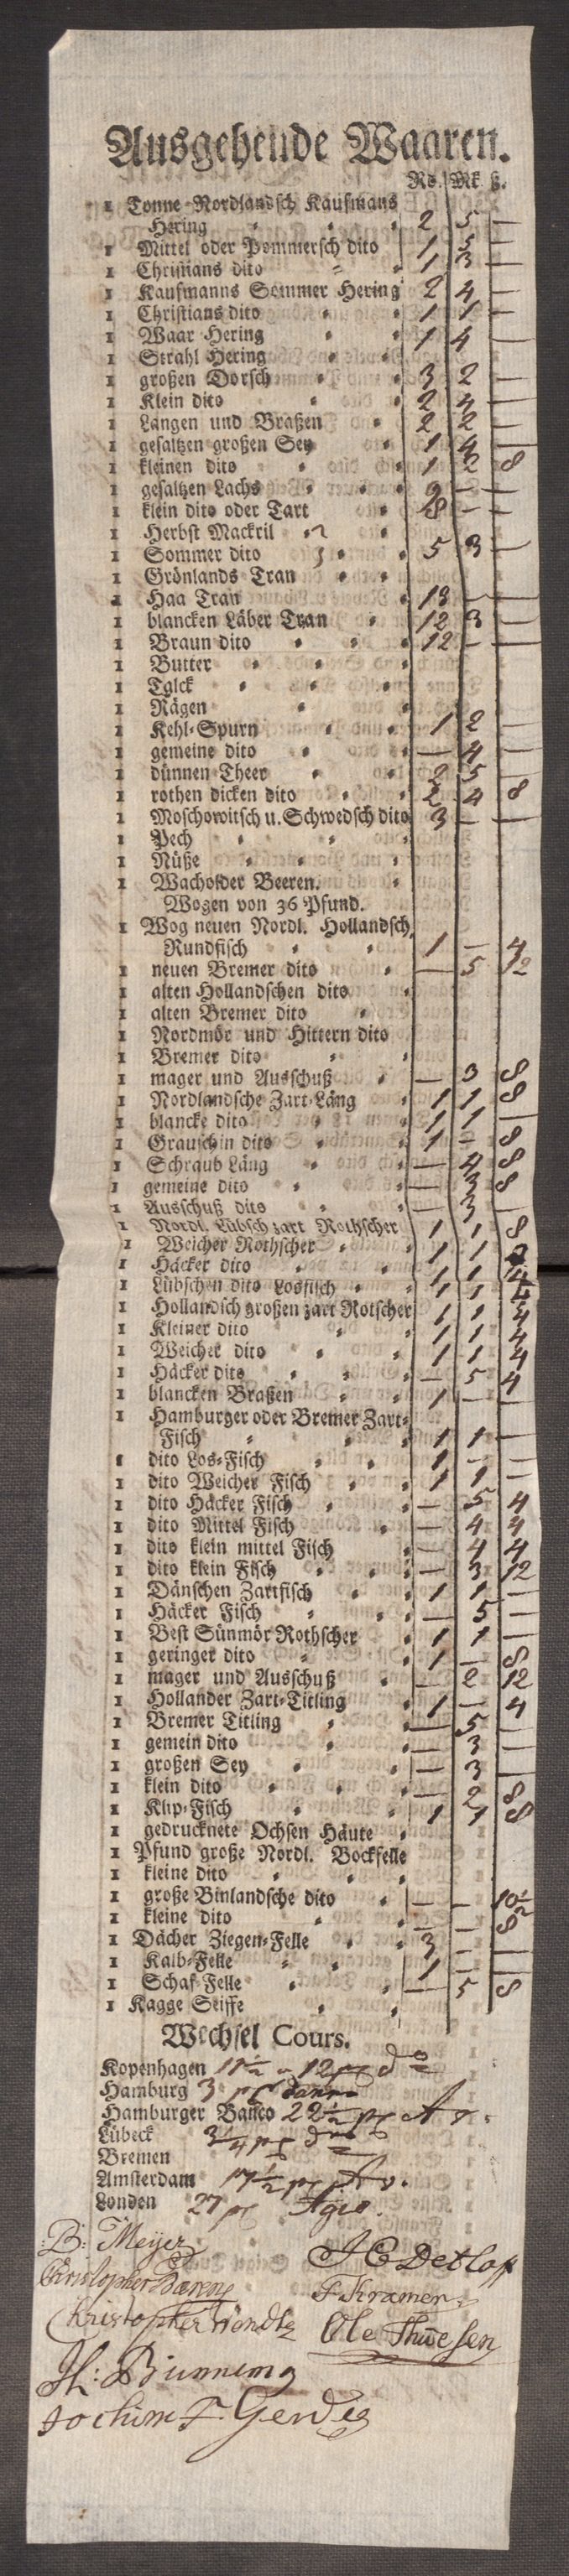 Ausgehende Waaren.
Rd. Mk ß.
1 Tonne Nordlandsch Kaufmans
Hering 2 5 —
1 Mittel oder Pommersch dito 1 5 —
1 Christians dito 1 3 —
1 Kaufmanns Sommer Hering 2 4 —
1 Christians dito 1 1 —
1 Waar Hering 1 4 —
1 Strahl Hering
1 großen Dorsch 3 2 —
1 Klein dito 2 4 —
1 Längen und Braßen 2 2 —
1 gesaltzen großen Sey 1 4 —
1 kleinen dito 1 2 8
1 gesaltzen Lachs 9 — —
1 klein dito oder Tart 8 — —
1 Herbst Mackril
1 Sommer dito 5 3 —
1 Grönlands Tran
1 Haa Tran 13 — —
1 blancken Läber Tran 12 3 —
1 Braun dito 12 — —
1 Butter
1 Talck
1 Rägen
1 Kehl-Spurn 1 2 —
1 gemeine dito — 4 —
1 dünnen Theer 2 5 —
1 rothen dicken dito 2 4 8
1 Moschowitsch u. Schwedsch dito 3 — —
1 Pech
1 Nüße
1 Wacholder Beeren.
Wogen von 36 Pfund.
1 Wog neuen Nordl. Hollandsch
Rundfisch 1 — 4
1 neuen Bremer dito — 5 12
1 alten Hollandschen dito
1 alten Bremer dito
1 Nordmör und Hittern dito
1 Bremer dito
1 mager und Ausschuß — 3 8
1 Nordlandsche Zart-Läng 1 1 8
1 blancke dito 1 1 —
1 Grauschin dito 1 — 8
1 Schraub Läng — 4 8
1 gemeine dito — 3 8
1 Ausschuß dito — 3 —
1 Nordl. Lübsch zart Rothscher 1 1 8
1 Weicher Rothscher 1 1
1 Häcker dito 1 1 4
1 Lübschen dito Losfisch 1 1 4
1 Hollandsch großen zart Rotscher 1 1 4
1 Kleiner dito 1 1 4
1 Weicher dito 1 1 4
1 Häcker dito — 5 4
1 blancken Braßen 1 — —
1 Hamburger oder Bremer Zart-
Fisch 1 1 —
1 dito Los-Fisch 1 — —
1 dito Weicher Fisch 1 1 —
1 dito Häcker Fisch — 5 4
1 dito Mittel Fisch — 4 4
1 dito klein mittel Fisch — 4 4
1 dito klein Fisch — 3 12
1 Dänschen Zartfisch 1 1 —
1 Häcker Fisch — 5 —
1 Best Sünmör Rothscher 1 1 —
1 geringer dito 1 — 8
1 mager und Ausschuß — 2 12
1 Hollander Zart-Titling 1 — 4
1 Bremer Titling — 5 —
1 gemein dito — 3 —
1 großen Sey — 3 —
1 klein dito — 2 8
1 Klip-Fisch 1 1 8
1 gedrucknete Ochsen Häute
1 Pfund große Nordl. Bockfelle
1 kleine dito
1 große Binlandsche dito — — 10½
1 kleine dito — — 8
1 Dächer Ziegen-Felle 3 — —
1 Kalb-Felle 1 — —
1 Schaf-Felle — 5 8
1 Kagge Seiffe
Wechsel Cours.
Kopenhagen 11½ a 12 pC do
Hamburg 3 pC
Hamburger Banco 22½ pC
Lübeck 3¼ pC
Bremen
Amsterdam 17½ pC
Londen 27 pC Agio.
B: Meyer
J C Detlof
F Kramer
Christopher Wendte
Ole Thuesen
H: Bünning
Jochim F. Gerdes